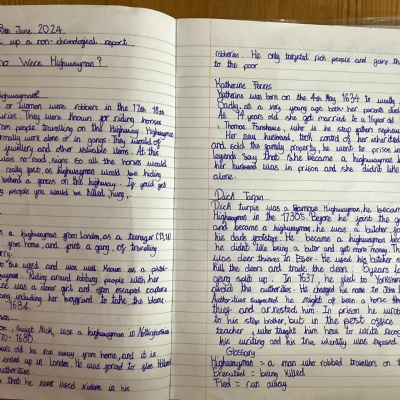 June 2024
up a non-chronological report
Were Highwayman?
Highwayman?
or women were robbers in the 17th 18th
They were known for riding horses
from people travelling on the Highway. Highwayman
work alone or in gangs. They would
jewellery and other valuable items. At this
was no road signs so all the horses would
really fast, as highwayman would be hiding
behind a fences on the highway. If you'd get
people you would be killed, hung,
a highwayman from London, as a teenager (13,14)
from home, and joint a gang, of travelling
the west and was well known as a
Riding around robbing people with her
was a clever girl and often escaped capture
including her boyfriend to take the blame.
1684.
Swift Nick, was a highwayman in Nottinghamshire
- 1680.
old he ran away from home, and it is
ended up in London. He was forced to give
authorities.
that he ever used violence in his
robberies. He only targeted rich people and gave
to the poor
Katherine Ferres
Katherine was born on the 4th May 1634. In
Sadly, at a very young age both her parents died
At 14 years old she got married to a 16 year old
, Thomas Fanshawe, who is he step fathers nephew
Her new husband, took control of her inherited
and sold the family property, he went to prison
legends say that she became a highwayman
her husband was in prison and she didn't like
alone.
Dick Turpin
Dick turpin was a famous Highwayman, he became
Highwayman in the 1730s. Before he joint the
and became a highwayman, he was a butcher,
his dads footsteps. He became a highwayman
he didn't like being a butcher and get more money.
was deer thieves in Essex. He used his butcher
kill the deers and trade the deers.
gang split up. In 1637, he fled to Yorkshire
the authorities. He changed his name to John
Authorities suspected he might of been a horse
thief and arrested him. In prison he wrote
to his step brother, but in the post office
teacher, who taught him how to write
his writing and his true identity was exposed
Glossary
Highwayman = a man who robbed travellers on
Executed = being killed
Fled = run away